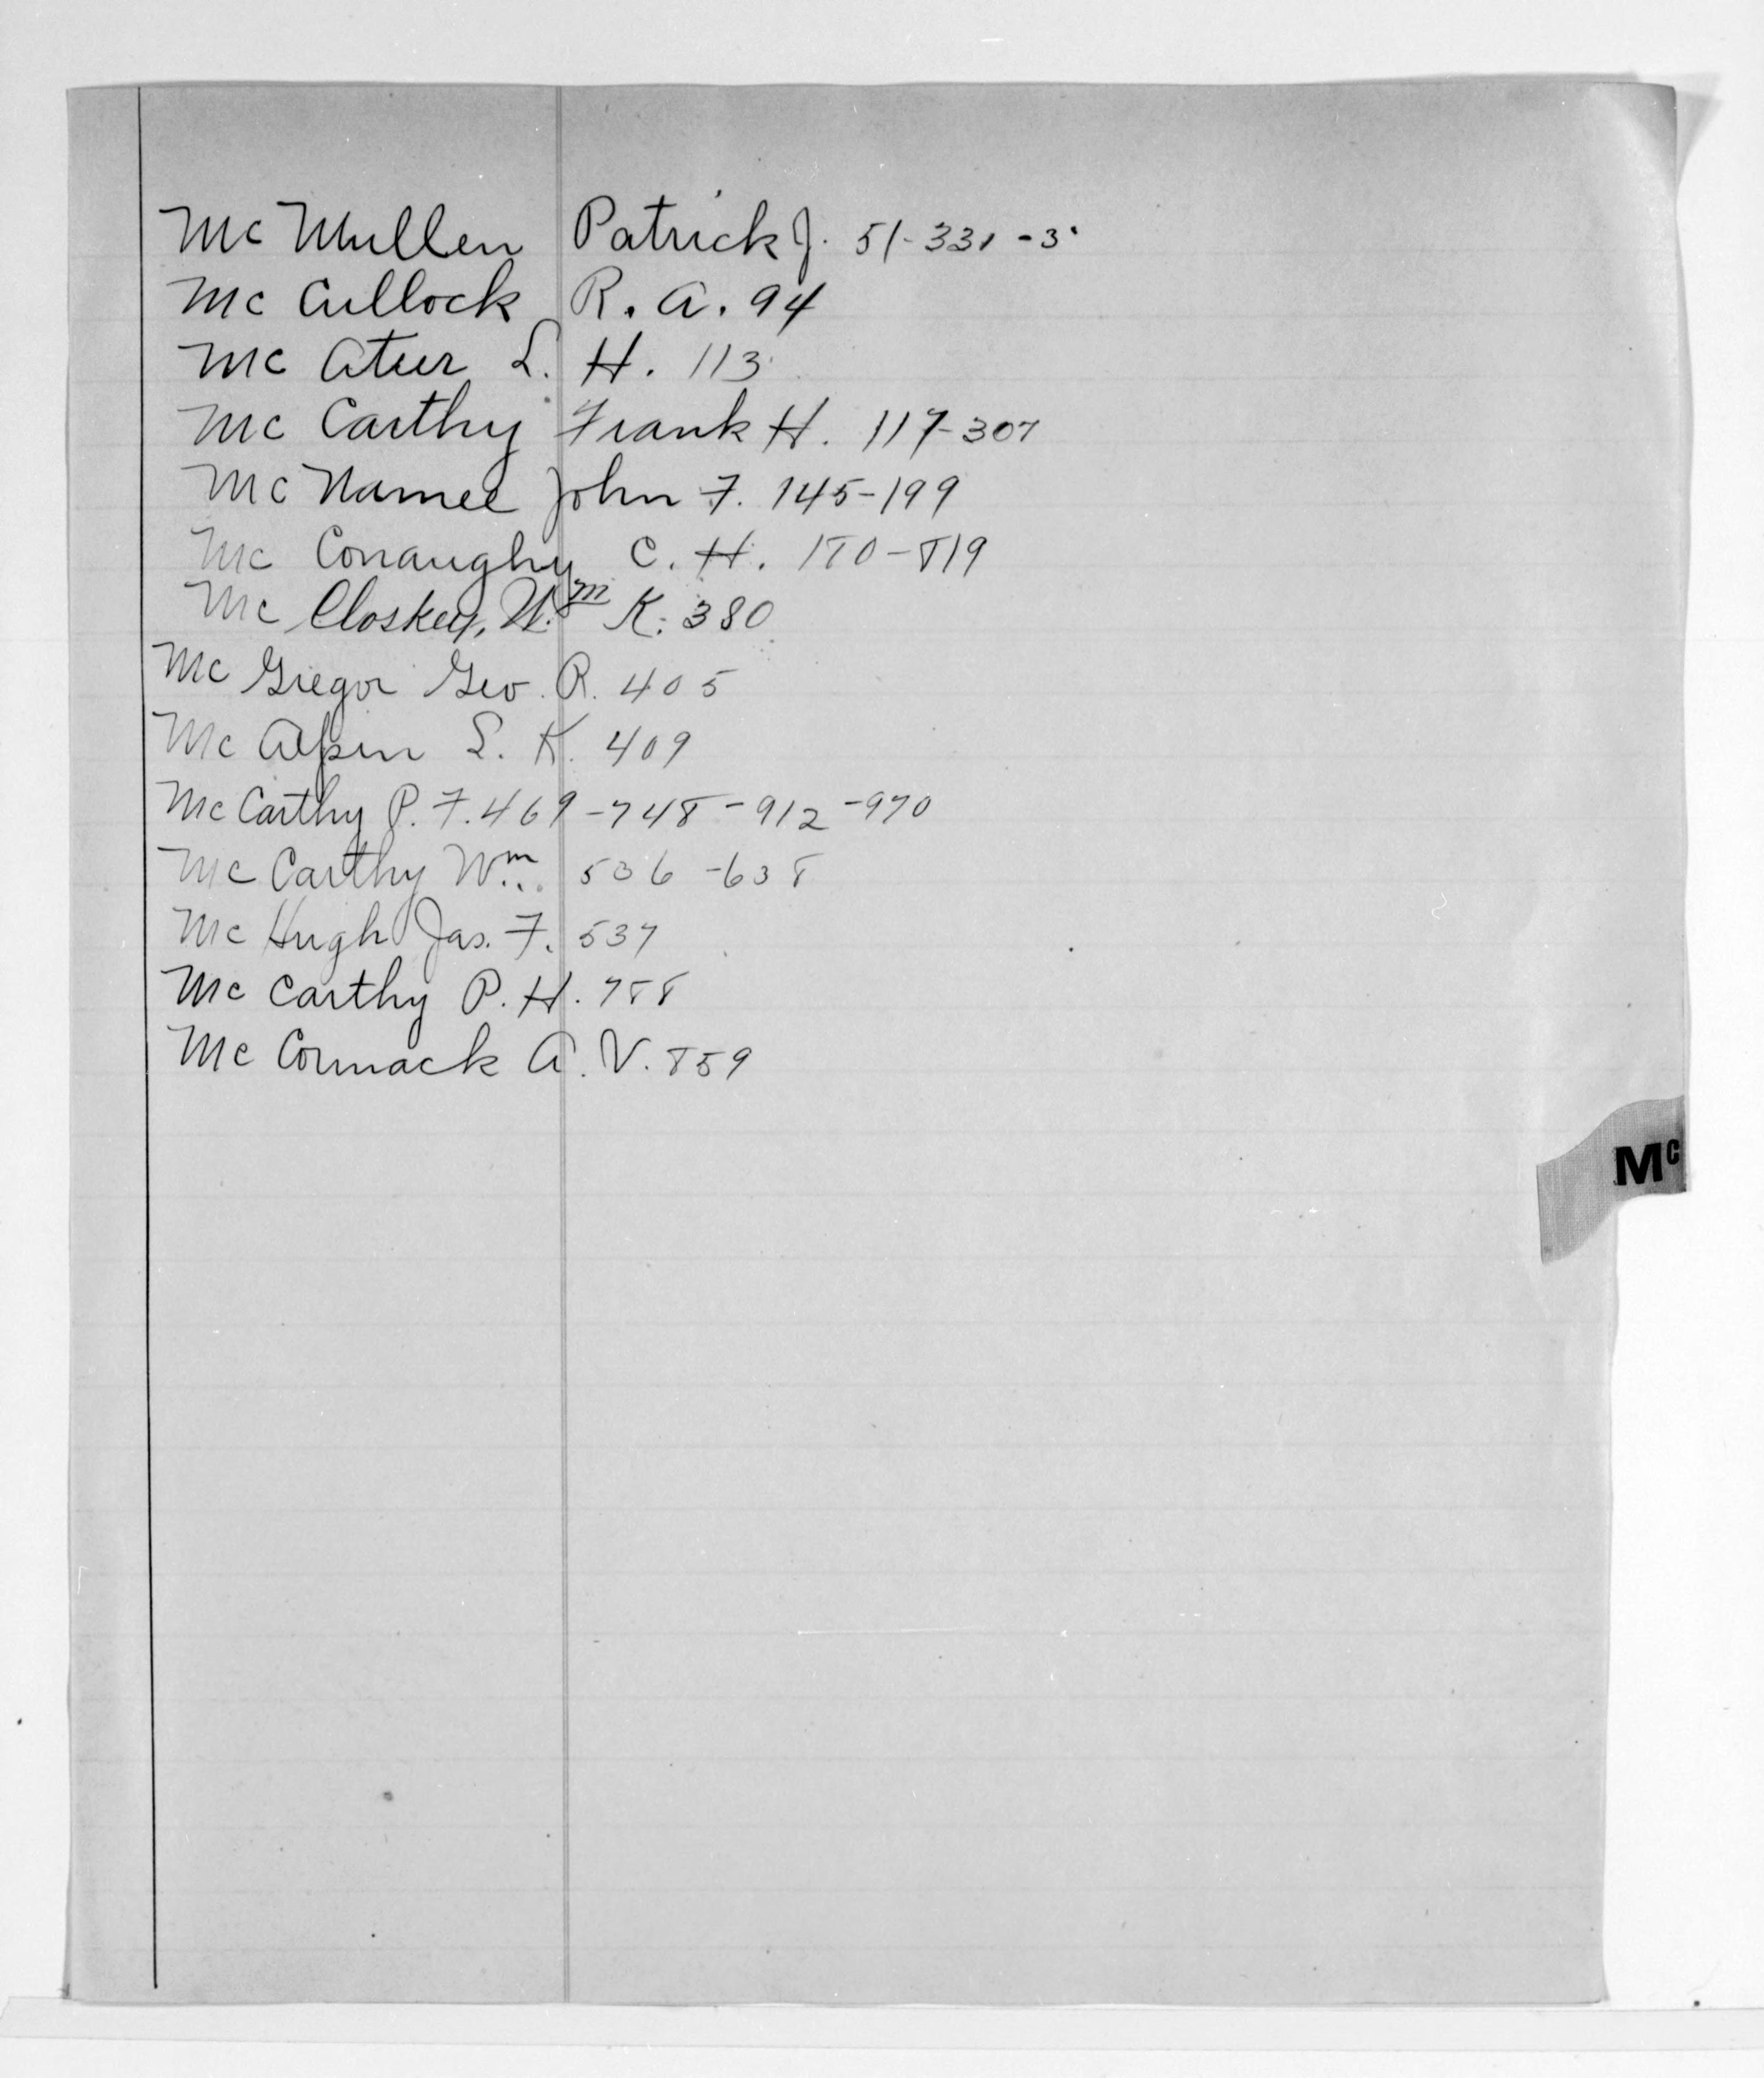 Mc Mullen Patrick J. 51-331-3
Mc Cullock R. A. 94
Mc Ateer L. H. 113
Mc Carthy Frank H. 117-307
Mc Namee John F. 145-199
Mc Conaughy C. H. 180-819
Mc Closkey, Wm K. 380
Mc Gregor Geo. R. 405
Mc Alpin L. K. 409
Mc Carthy P. F. 469-748-912-970
Mc Carthy Wm. 536-638
Mc Hugh Jas. F. 537
Mc Carthy P. H. 788
Mc Cormack A. V. 859
Mc